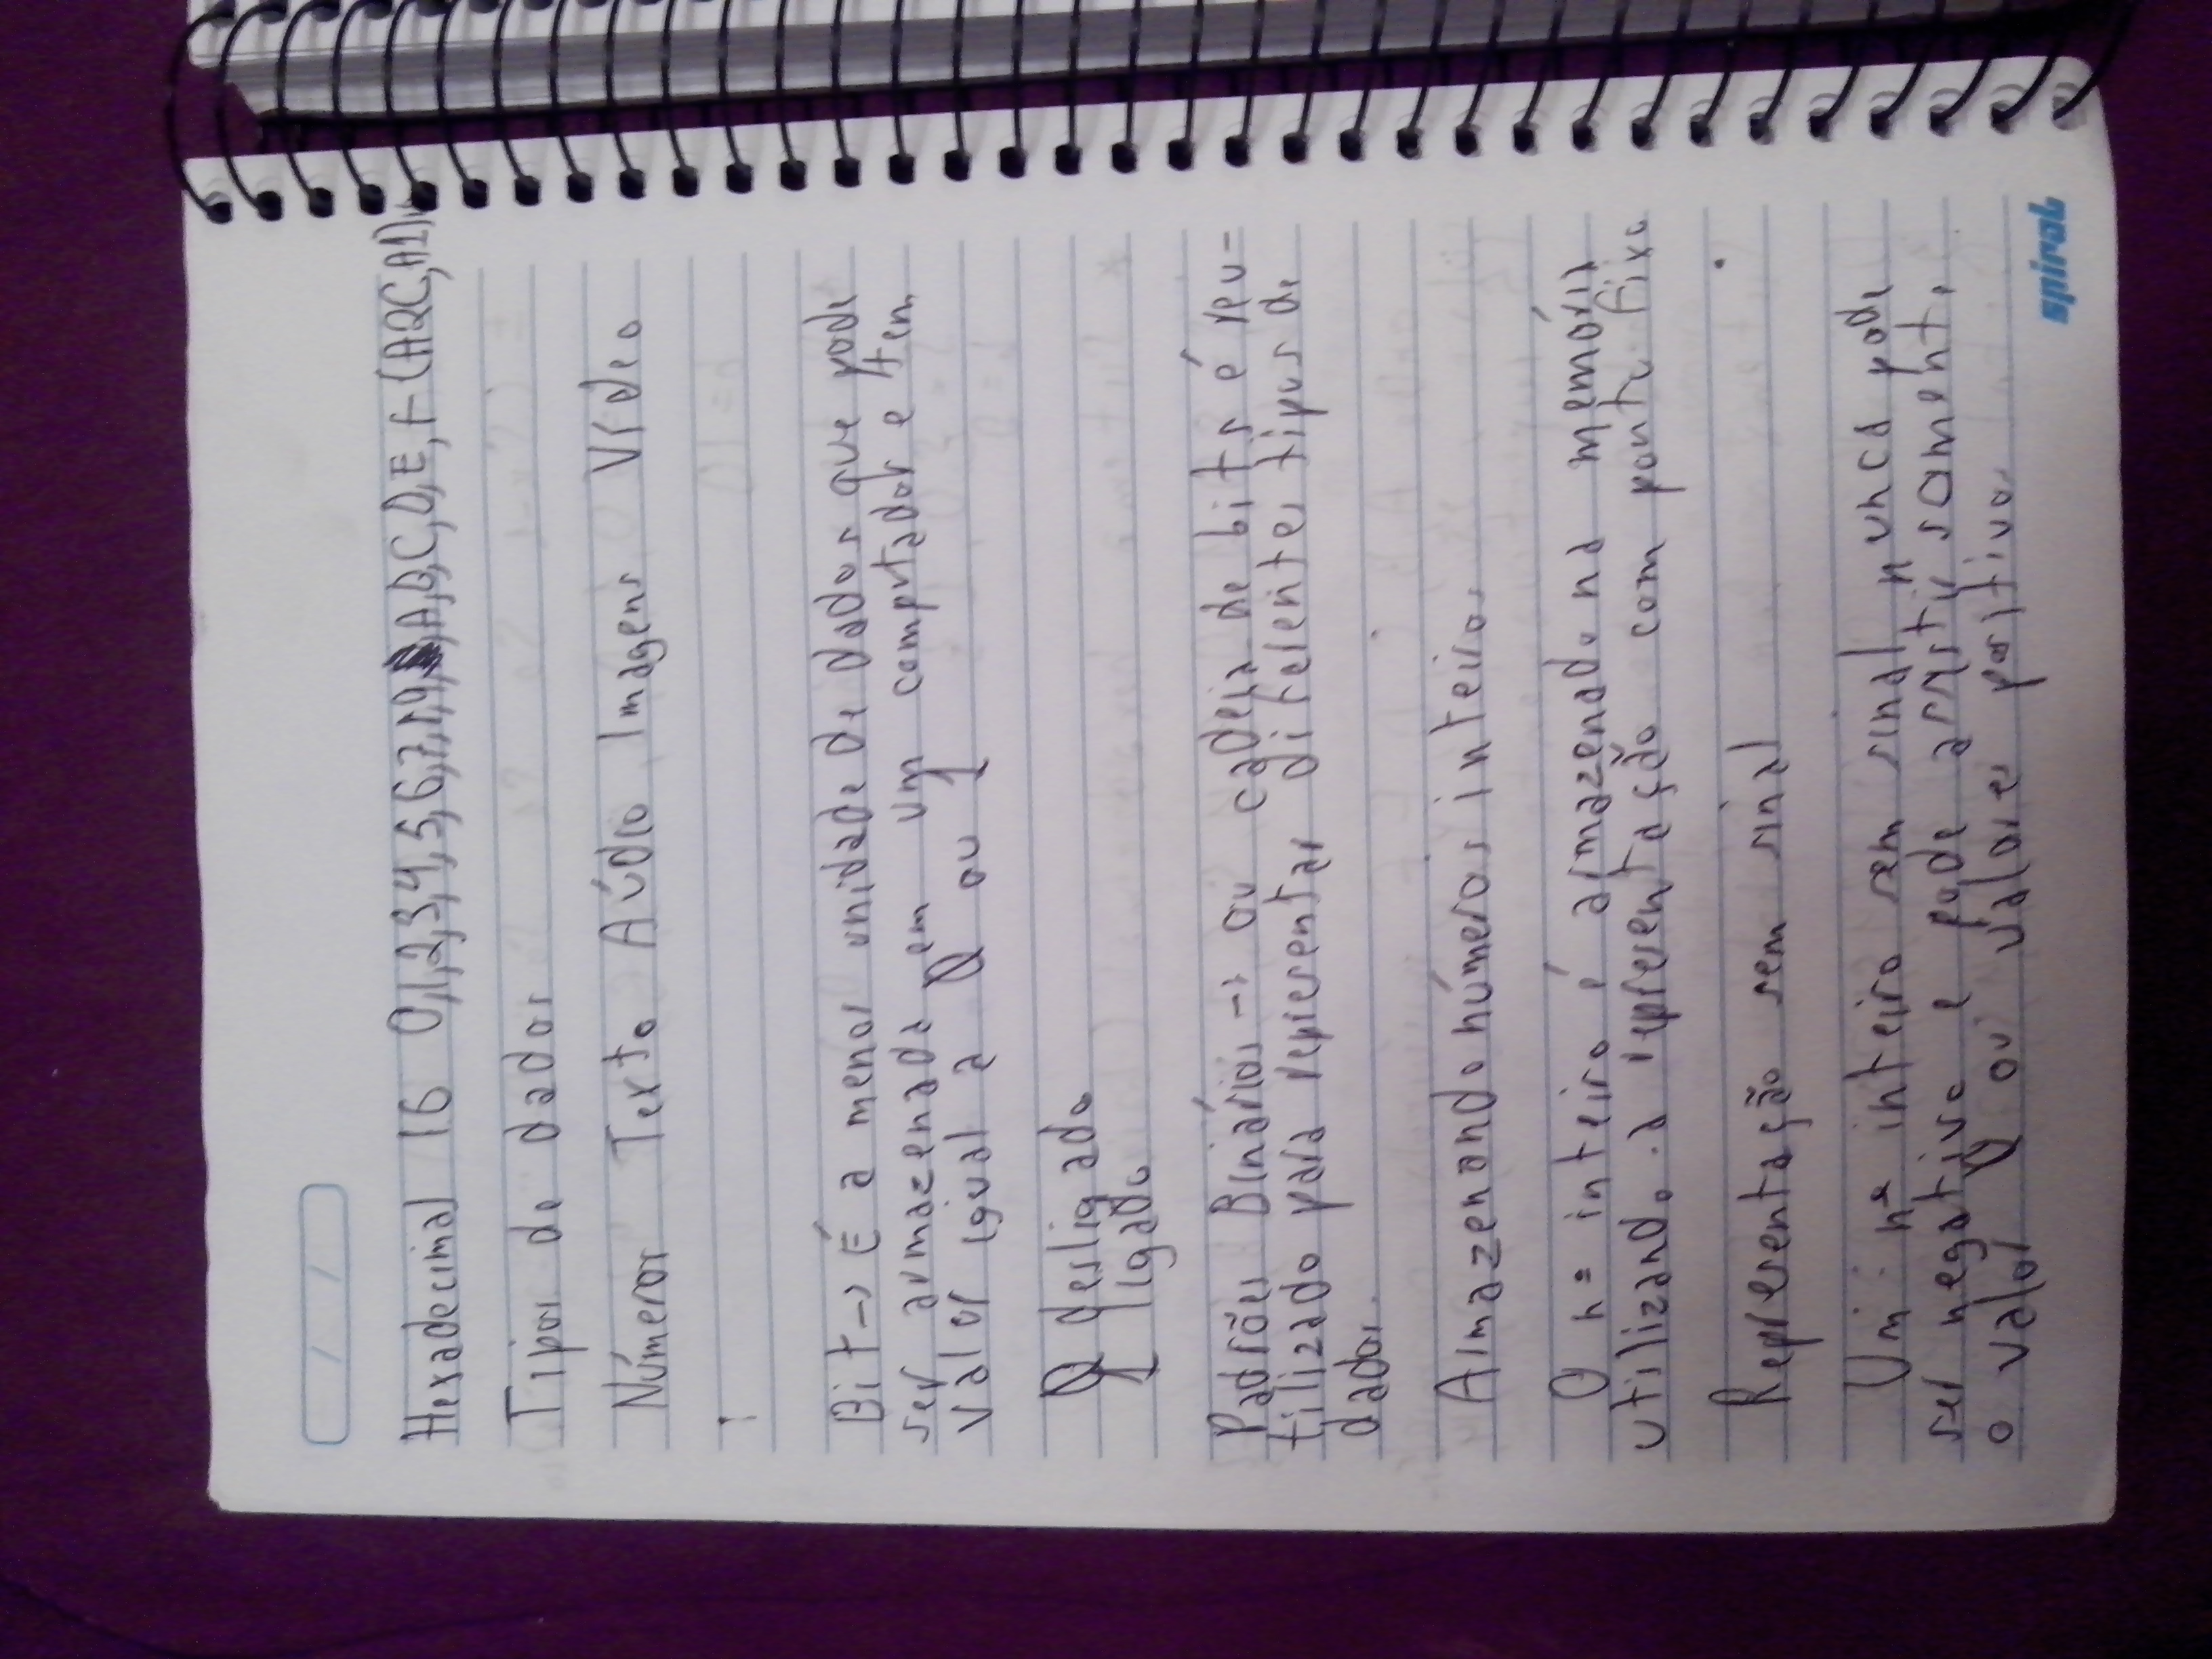 Hexadecimal 16 0,1,2,3,4,5,6,7,8,9,A,B,C,D,E,F (A2C,A1)
Tipos de dados
Números Texto Aúdio Imagens Vídeo
Bit → É a menor unidade de dados que pode
ser armazenada em um computador e tem
valor igual a 0 ou 1
0 desligado
1 ligado
Padrões Binários → ou cadeia de bits é reu-
tilizado para representar diferentes tipos de
dados.
Armazenando números inteiros
O nº inteiro é armazenado na memória
utilizando a representação com ponto fixo
Representação sem sinal
Um nº inteiro sem sinal nunca pode
ser negativo e pode
o valor 0 ou valores positivos
spiral